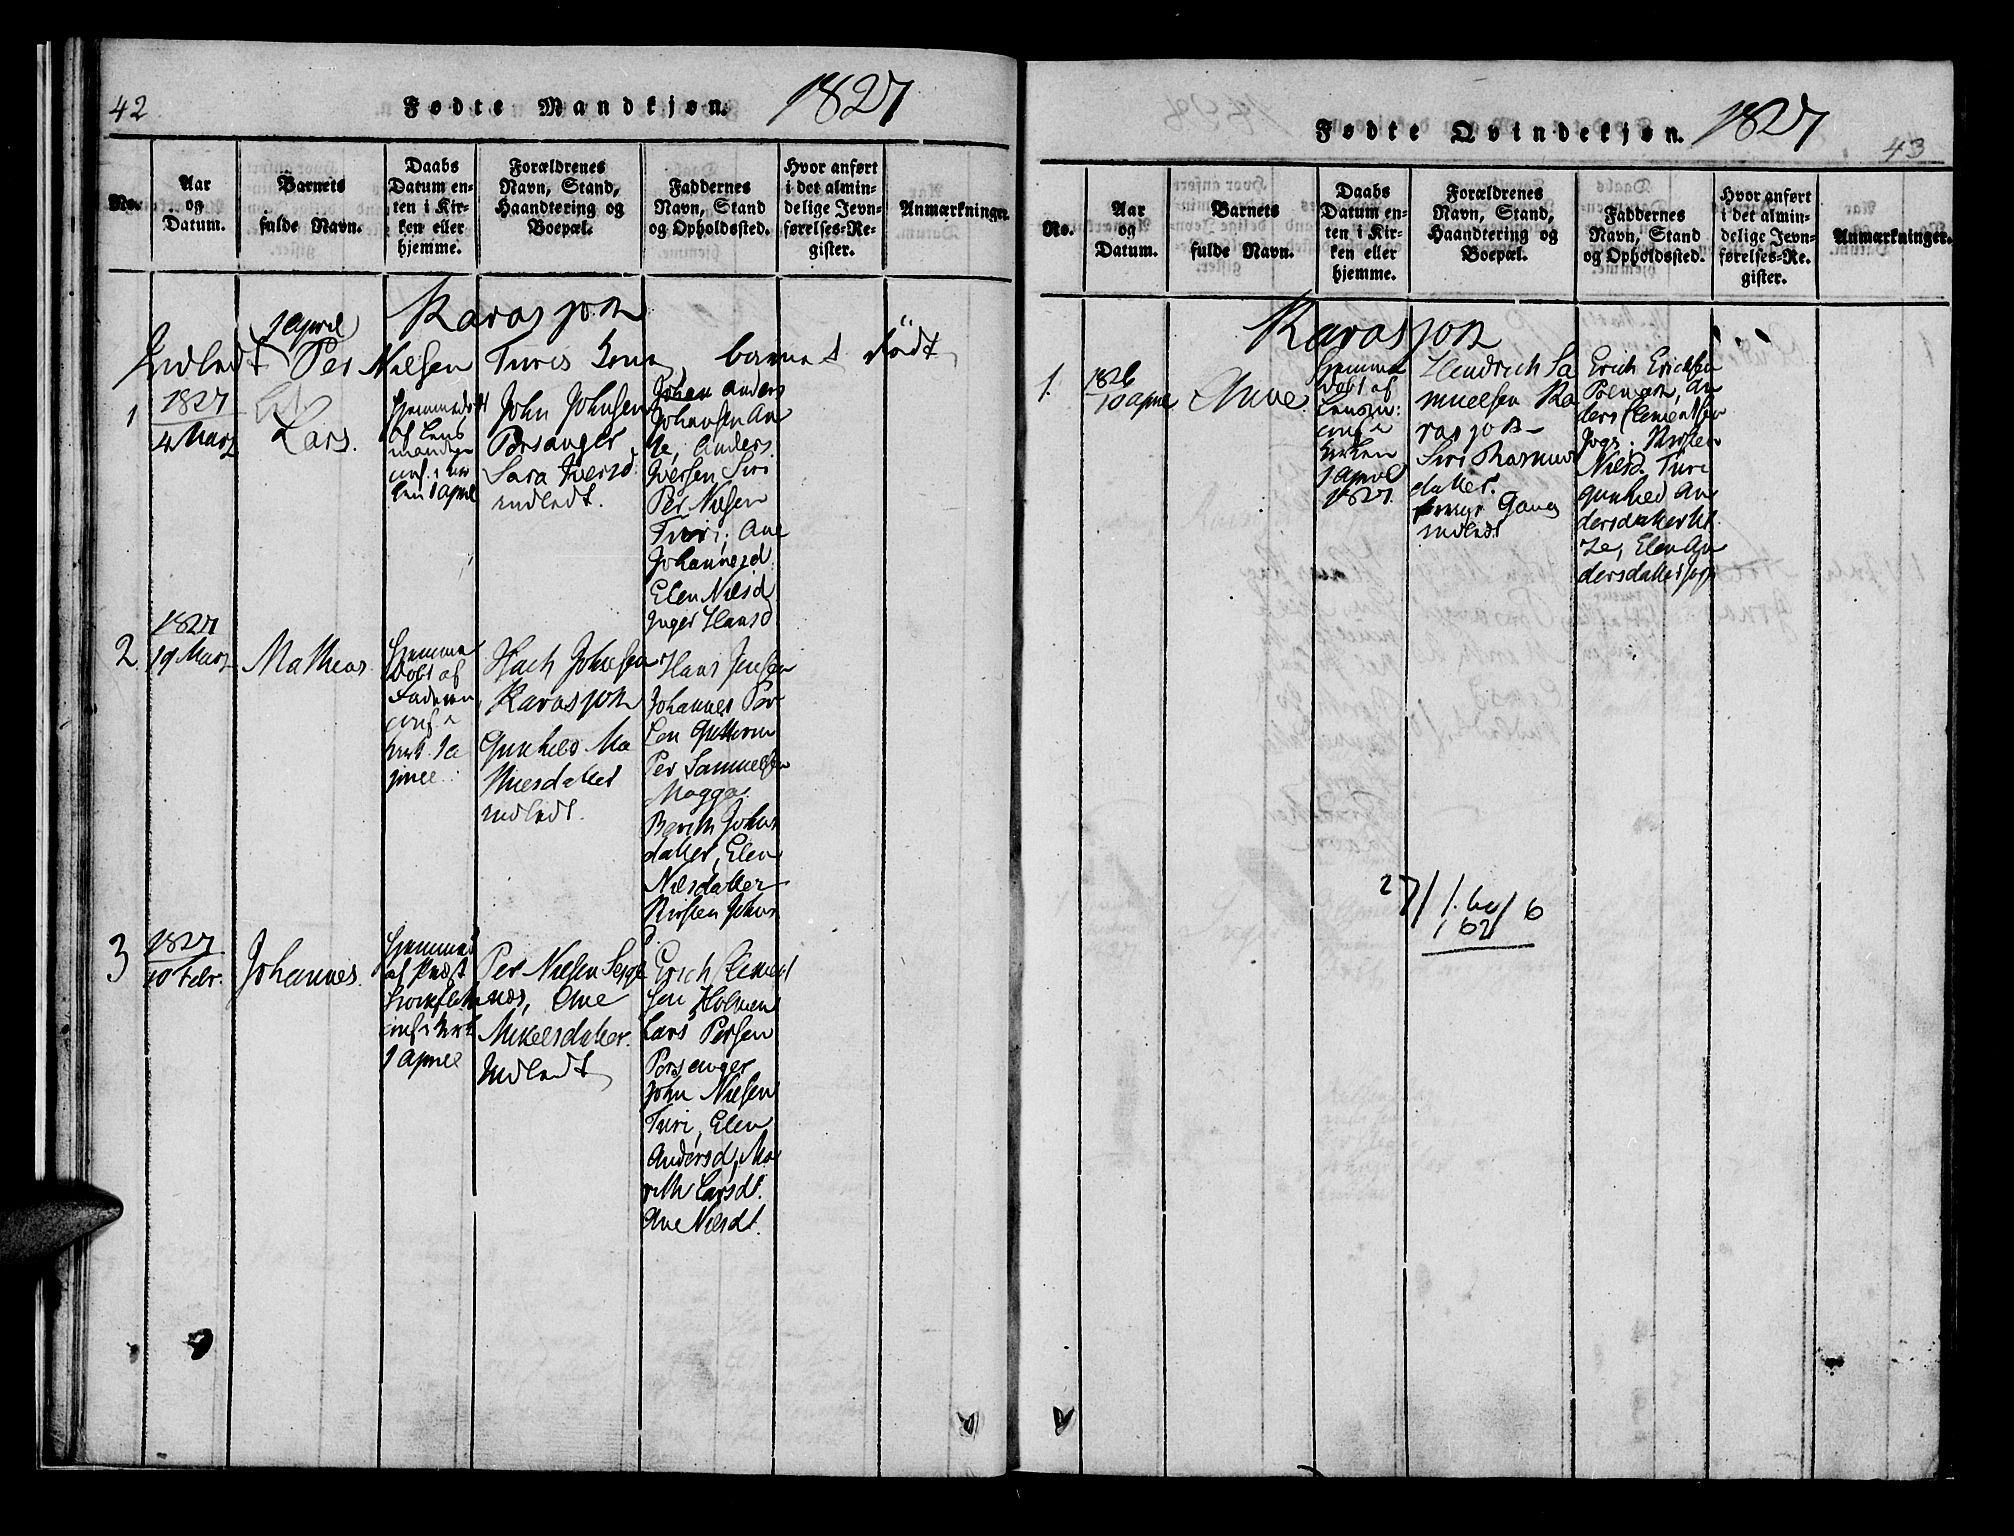 42
Fødte Mandkjøn. 1827
No.
Aar
og
Datum.
Barnets
fulde Navn.
Daabs
Datum en-
ten i Kir-
ken eller
hjemme.
Forældrenes
Navn, Stand,
Haandtering og
Boepæl.
Faddernes
Navn, Stand
og Opholdssted.
Hvor anført
i det almin-
delige Jevn-
førelses-Re-
gister.
Anmærkninger.
Karasjok
1 April
Indledt Per Nielsen Turis Kone, barnet dödt
1
1827
4 Marz
Lars.
Hjemmedöbt
af Lens
manden
conf. i Kir
ken 1 April
John Johnsen
Porsanger
Sara Iversd.
indledt.
Johan Anders
Johannsen An
ne, Anders
Iversen Siri
Per Nielsen
Turi; Ane
Johannesd
Elen Nielsd
Inger Hansd
2.
1827
19 Marz
Mathias.
Hjemme
döbt af
Faderen
conf i
kirk. 1 a
pril.
Johnsen
Karasjok
Gunhild Ma
thiesdatter
indledt.
Hans Jensen
Johannes Per
sen Guttorm
Per Samuelsen
Magga
Berith Johns
datter, Elen
Nielsdatter
Kirsten Johns
3
1827
10 Febr.
Johannes.
Hjemmed
af Præst
conf i kirk
1 April
Per Nielsen
næs, Ane
Mikelsdatter.
Indledt
Erich Clement
sen Holmen
Lars Persen
Porsanger
John Nielsen
Turi, Elen
Andersd, Ma
rith Larsdt.
Ane Nielsdt.
Fødte Qvindekjøn. 1827
43
No.
Aar
og
Datum.
Barnets
fulde Navn.
Daabs
Datum en-
ten i Kir-
ken eller
hjemme.
Forældrenes
Navn, Stand,
Haandtering og
Boepæl.
Faddernes
Navn, Stand
og Opholdssted.
Hvor anført
i det almin-
delige Jevn-
førelses-Re-
gister.
Anmærkninger.
Karasjok
1.
1826
10 April
Anne
Hjemme
döbt af
Lensm:
conf i
Kirken
1 April
1827.
Hendrich Sa
muelsen Ka
rasjok
Siri Rasmus
datter.
Gang
indledt
Erich Erichsen
Polmak, An
ders Clementsen
Kirsten
Nielsd. Turi
Gunhild An
dersdatter Ut
ze, Elen An
dersdatter
27/1.60/6
162